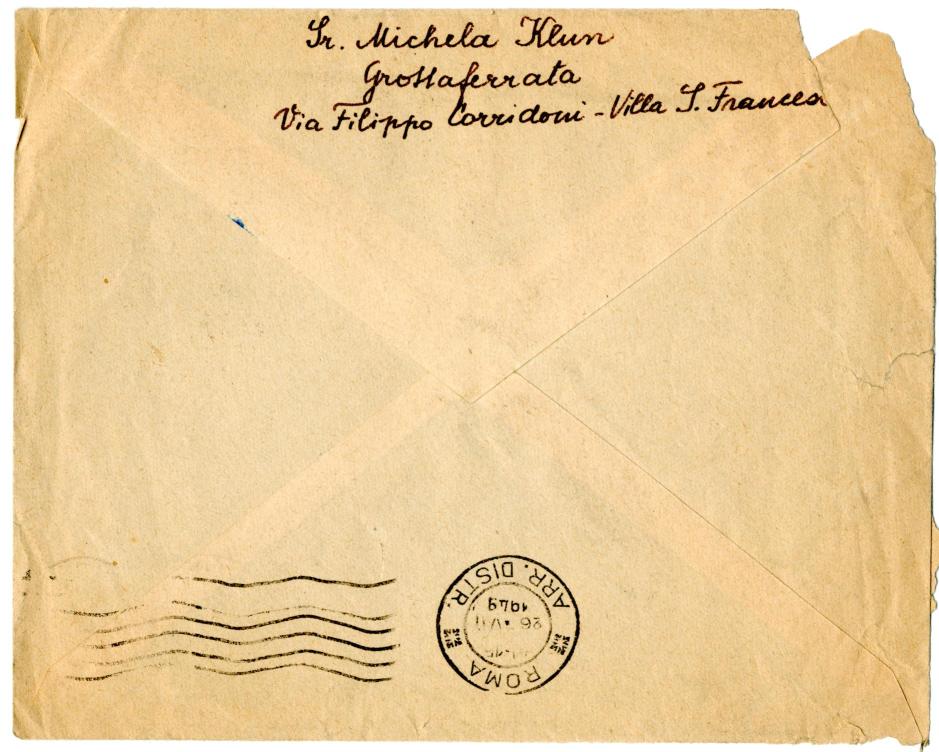 Sr. Michela Klun
Grottaferrata
Via Filippo Corridoni - Villa S. Frances
ROMA
26
1949
ARR. DISTR.